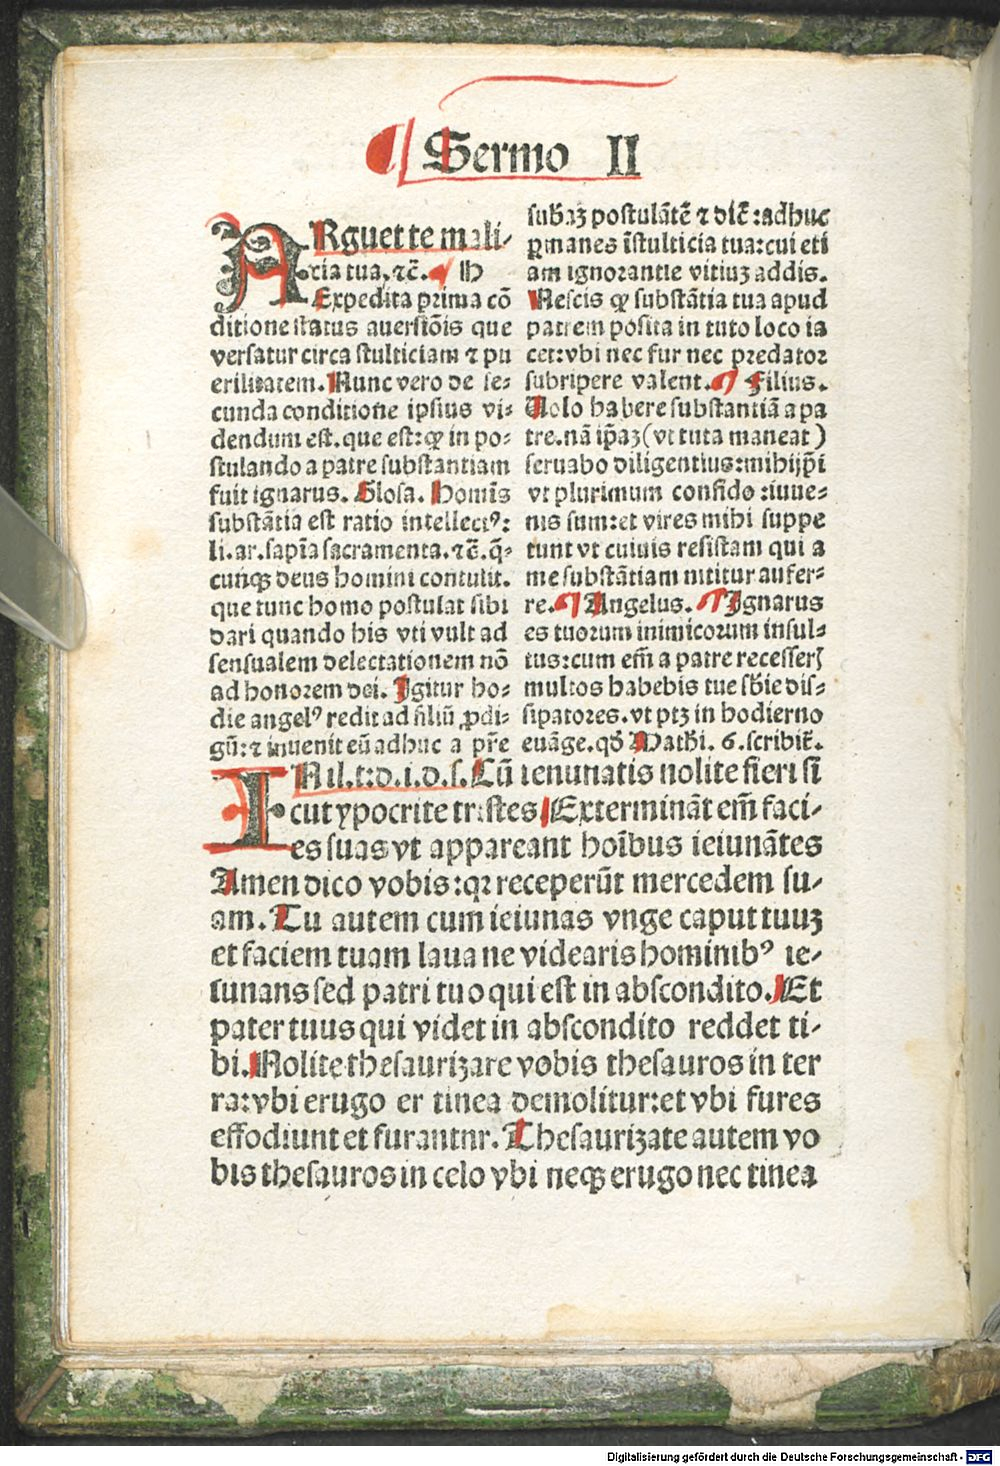 Sermo II
ARguet te mali-
cia tua. ⁊c̄. H
Expedita prima cō
ditione status auersiōis que
versatur circa stulticiam ⁊ pu
erilitatem. Nunc vero de se-
cunda conditione ipsius vi-
dendum est. que est: ꝙ in po-
stulando a patre substantiam
fuit ignarus. Glosa. Homīs
substātia est ratio intellectꝰ:
li. ar. sapīa sacramenta. ⁊c̄. q̄-
cunqꝫ deus homini contulit.
que tunc homo postulat sibi
dari quando his vti vult ad
sensualem delectationem nō
ad honorem dei. Igitur ho-
die angelꝰ redit ad filiū ꝓdi-
gū: ⁊ inuenit eū adhuc a pr̄e
subaꝫ postulātē ⁊ dic̄: adhuc
ꝑmanes ī stulticia tua: cui eti
am ignorantie vitiuꝫ addis.
Nescis ꝙ substātia tua apud
patrem posita in tuto loco ia
cet: vbi nec fur nec predator
subripere valent. Filius.
Nolo habere substantiā a pa
tre. nā ip̄aꝫ (vt tuta maneat)
seruabo diligentius: mihijp̄i
vt plurimum confido: iuue-
nis sum: et vires mihi suppe
tunt vt cuiuis resistam qui a
me substātiam nititur aufer-
re. Angelus. Ignarus
es tuorum inimicorum insul-
tus: cum em̄ a patre recesserꝭ
multos habebis tue sb̄ie dis-
sipatores. vt ptꝫ in hodierno
euāge. qd̓ Math̓. 6. scribit̄.
IN il. t: d. i. d. s. Cū ieiunatis nolite fieri si
cut ypocrite tristes Extermināt em̄ faci-
es suas vt appareant hoībus ieiunātes
Amen dico vobis: qꝛ receperūt mercedem su-
am. Tu autem cum ieiunas vnge caput tuuꝫ
et faciem tuam laua ne videaris hominibꝰ ie-
iunans sed patri tuo qui est in abscondito. Et
pater tuus qui videt in abscondito reddet ti-
bi. Nolite thesaurizare vobis thesauros in ter
ra: vbi erugo er tinea demolitur: et vbi fures
effodiunt et furantnr. Thesaurizate autem vo
bis thesauros in celo vbi neqꝫ erugo nec tinea
Digitalisierung gefördert durch die Deutsche Forschungsgemeinschaft - DFG